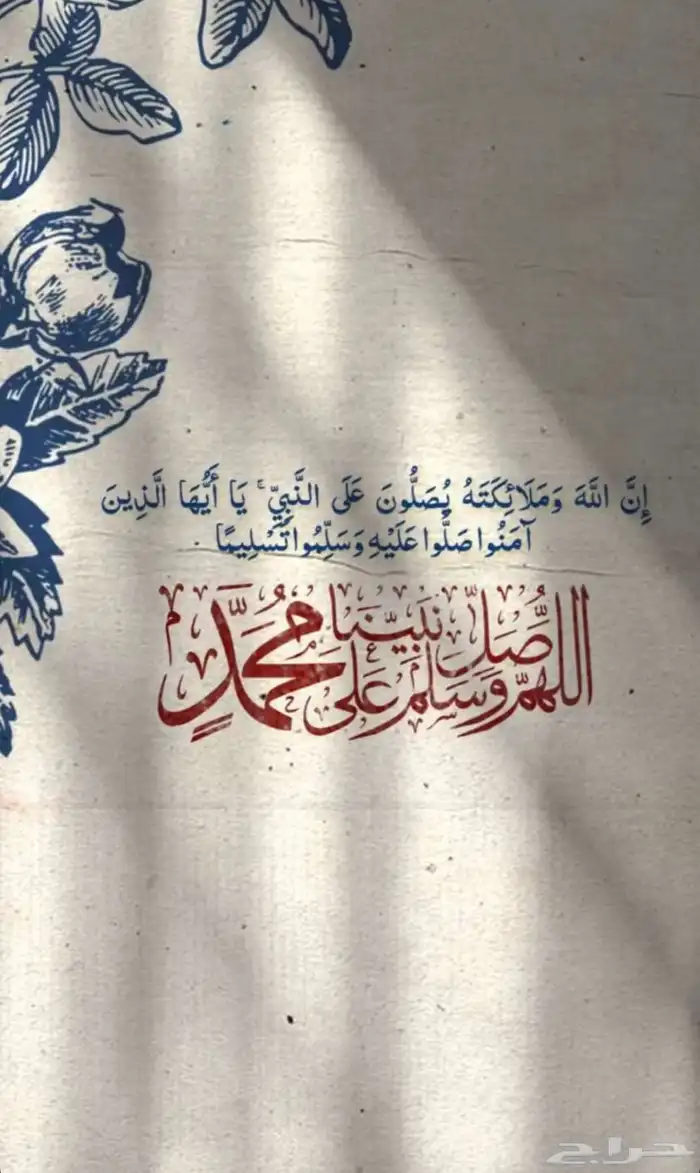 إِنَّ اللَّهَ وَمَلَائِكَتَهُ يُصَلُّونَ عَلَى النَّبِيِّ ۚ يَا أَيُّهَا الَّذِينَ
آمَنُوا صَلُّوا عَلَيْهِ وَسَلِّمُوا تَسْلِيمًا
اللهم صل وسلم على نبينا محمد
حراج